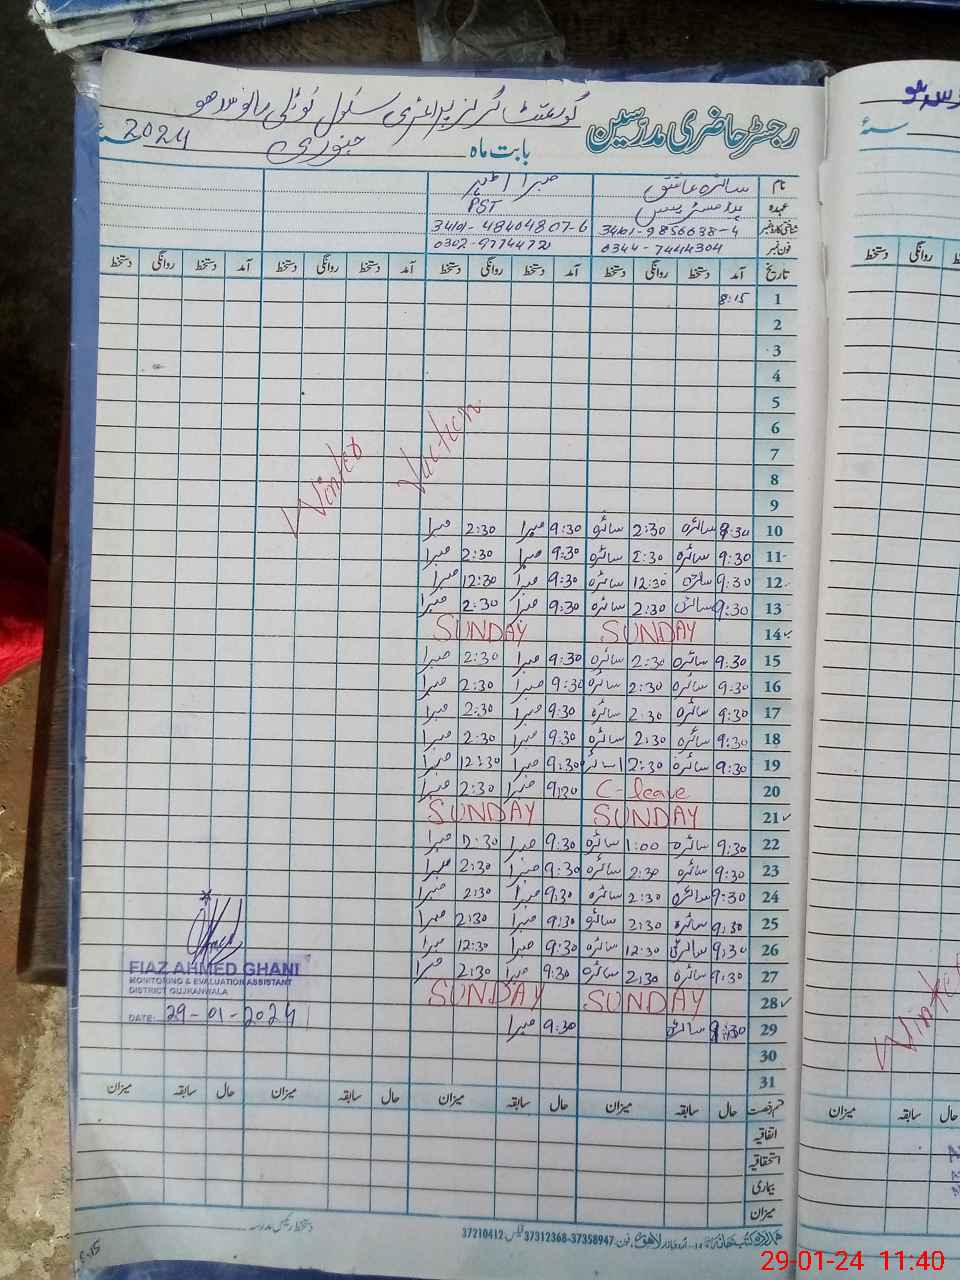 گورنمنٹ گرلز پرائمری سکول کوٹلی
رجسٹر حاضری مدرسین
بابت ماہ جنوری 2024 سنہ
نام سائرہ عاشق
عہدہ PST
شناختی کارڈ نمبر 34101-9856638-4 34101-48404807-6
فون نمبر 0344-7414304
تاریخ آمد دستخط روانگی دستخط آمد دستخط روانگی دستخط آمد دستخط روانگی دستخط آمد دستخط روانگی دستخط
1 8:15
2
3
4
5
6
7
8
9
Winter Vaction
10 9:30 سائرہ 2:30 سائرہ 9:30 صبرا 2:30 صبرا
11 9:30 سائرہ 2:30 سائرہ 9:30 صبرا 2:30 صبرا
12 9:30 سائرہ 12:30 سائرہ 9:30 صبرا 12:30 صبرا
13 9:30 سائرہ 2:30 سائرہ 9:30 صبرا 2:30 صبرا
14 SUNDAY SUNDAY
15 9:30 سائرہ 2:30 سائرہ 9:30 صبرا 2:30 صبرا
16 9:30 سائرہ 2:30 سائرہ 9:30 صبرا 2:30 صبرا
17 9:30 سائرہ 2:30 سائرہ 9:30 صبرا 2:30 صبرا
18 9:30 سائرہ 2:30 سائرہ 9:30 صبرا 2:30 صبرا
19 9:30 سائرہ 2:30 سائرہ 9:30 صبرا 12:30 صبرا
20 C-leave 9:30 صبرا 2:30 صبرا
21 SUNDAY SUNDAY
22 9:30 سائرہ 1:00 سائرہ 9:30 صبرا صبرا
23 9:30 سائرہ 2:30 سائرہ 9:30 صبرا 2:30 صبرا
24 9:30 سائرہ 2:30 سائرہ 9:30 صبرا 2:30 صبرا
25 9:30 سائرہ 2:30 سائرہ 9:30 صبرا 2:30 صبرا
26 9:30 سائرہ 12:30 سائرہ 9:30 صبرا 12:30 صبرا
27 9:30 سائرہ 2:30 سائرہ 9:30 صبرا 2:30 صبرا
28 SUNDAY SUNDAY
29 9:30 سائرہ 9:30 صبرا
30
31
FIAZ AHMED GHANI
MONITORING & EVALUATION ASSISTANT
DISTRICT GUJRANWALA
DATE: 29-01-2024
قسم رخصت حال سابقہ میزان حال سابقہ میزان حال سابقہ میزان حال سابقہ میزان
اتفاقیہ
استحقاقیہ
بیماری
میزان
دستخط رئیس مدرسہ
فون: 37358947-37312368 فیکس: 37210412
دستخط روانگی
میزان سابقہ حال
29-01-24 11:40